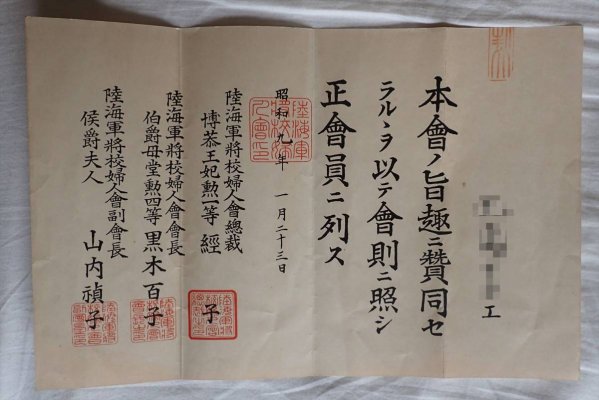 エ
本會ノ旨趣ニ賛同セ
ラルヽヲ以テ會則ニ照シ
正會員ニ列ス
昭和九年 一月二十三日
陸海軍將校婦人會總裁
博恭王妃勲一等 經子
陸海軍將校婦人會會長
伯爵母堂勲四等 黒木百子
陸海軍將校婦人會副會長
侯爵夫人 山内禎子
陸海軍將校婦人會印